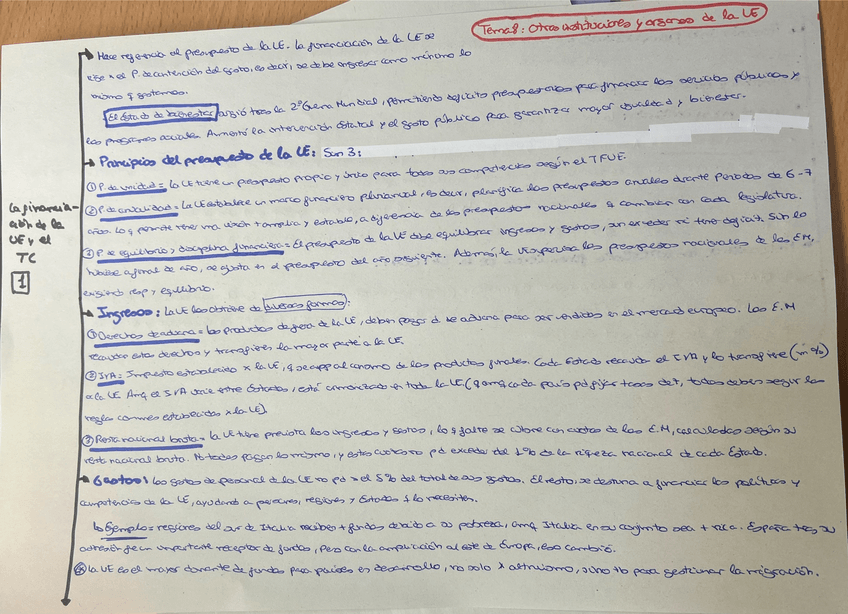 Tema 8: Otras instituciones y organos de la UE
→ Hace referencia al presupuesto de la UE. La financiación de la UE se
rige x el P de contención del gasto, es decir, se debe ingresar como mínimo lo
mismo q gastamos.
El estado de bienestar surgió tras la 2ª Guerra Mundial, permitiendo déficits presupuestarios para financiar los servicios públicos y
los programas sociales. Aumentó la intervención estatal y el gasto público para garantizar mayor igualdad y bienestar.
→ Principios del presupuesto de la UE: Son 3:
① P. de unidad = La UE tiene un presupuesto propio y único para todas sus competencias según el TFUE.
② P. de anualidad = La UE establece un marco financiero plurianual, es decir, planifica los presupuestos anuales durante periodos de 6-7
años lo q permite tener una visión + amplia y estable, a diferencia de los presupuestos nacionales q cambian con cada legislatura.
③ P. de equilibrio y disciplina financiera = El presupuesto de la UE debe equilibrar ingresos y gastos, sin exceder ni tener déficit. Si lo
hubiese a final de año, se ajusta en el presupuesto del año siguiente. Además, la UE supervisa los presupuestos nacionales de los EM,
exigiendo resp y equilibrio.
La financiación de la UE y el TC
1
→ Ingresos: La UE los obtiene de diversas formas:
① Derechos de aduana = Los productos de fuera de la UE, deben pagar d. de aduana para ser vendidos en el mercado europeo. Los E.M
recaudan estos derechos y transfieren la mayor parte a la UE.
② IVA = Impuesto establecido x la UE, q se aplica al consumo de los productos finales. Cada Estado recauda el IVA y lo transfiere (un %)
a la UE. Aunq el IVA varíe entre Estados, está armonizado en toda la UE (q aunq cada país pd fijar tasas dif, todos deben seguir las
reglas comunes establecidas x la UE).
③ Renta nacional bruta = La UE tiene prevista los ingresos y gastos, lo q falte se cubre con cuotas de los E.M, calculadas según su
renta nacional bruta. No todos pagan lo mismo, y estas cuotas no pd exceder del 1% de la riqueza nacional de cada Estado.
→ Gastos: Los gastos de personal de la UE no pd > el 5% del total de sus gastos. El resto, se destina a financiar las políticas y
competencias de la UE, ayudando a personas, regiones y Estados q lo necesiten.
↳ Ejemplo = regiones del sur de Italia reciben + fondos debido a su pobreza, aunq Italia en su conjunto sea + rica. España tras su
adhesión fue un importante receptor de fondos, pero con la ampliación al este de Europa, eso cambió.
La UE es el mayor donante de fondos para países en desarrollo, no solo x altruismo, sino tb para gestionar la migración.